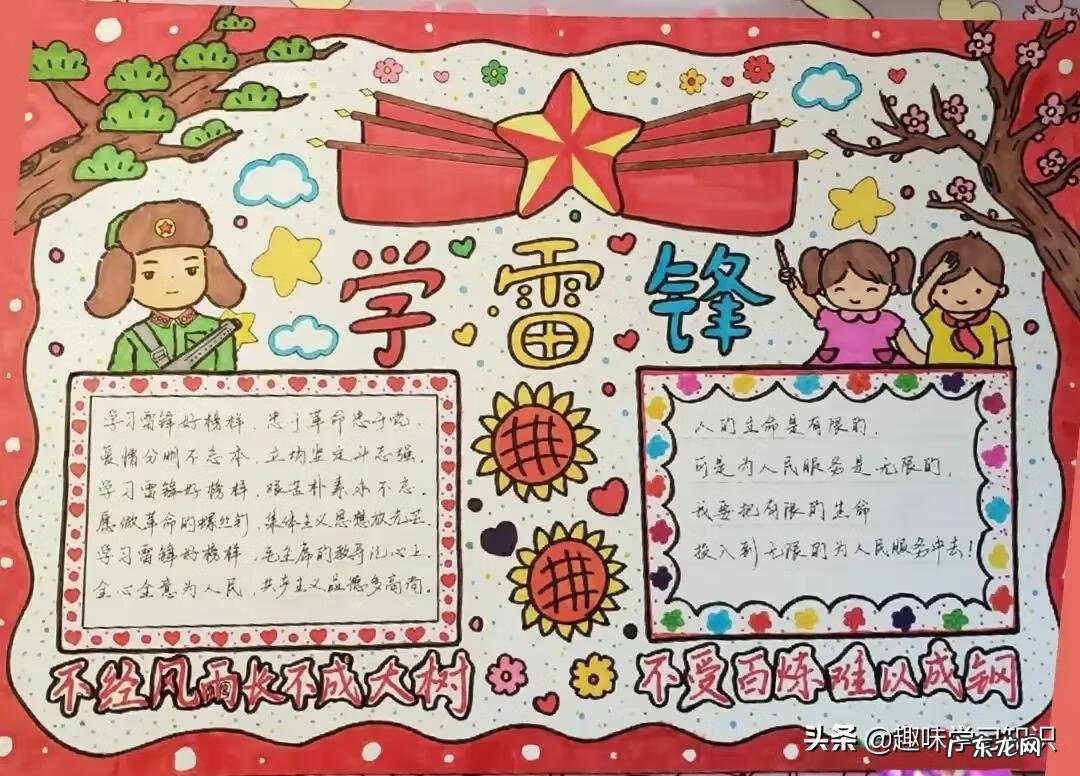 学雷锋
学习雷锋好榜样，忠于革命忠于党，
爱憎分明不忘本，立场坚定斗志强，
学习雷锋好榜样，艰苦朴素永不忘，
愿做革命的螺丝钉，集体主义思想放光芒，
学习雷锋好榜样，毛主席的教导记心上，
全心全意为人民，共产主义品德多高尚。
人的生命是有限的，
可是为人民服务是无限的，
我要把有限的生命
投入到无限的为人民服务中去！
不经风雨长不成大树
不受百炼难以成钢
头条 @趣味学习知识
广东龙网